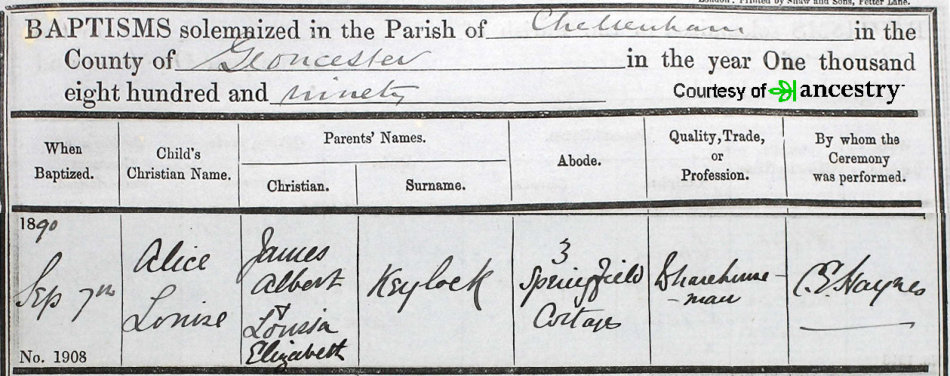 London: Printed by Shaw and Sons, Fetter Lane.
BAPTISMS solemnized in the Parish of Cheltenham in the
County of Gloucester in the year One thousand
eight hundred and ninety
Courtesy of ancestry
When
Baptized.
Child's
Christian Name.
Parents' Names.
Christian.
Surname.
Abode.
Quality, Trade,
or
Profession.
By whom the
Ceremony
was performed.
1890
Sep 7th
No. 1908
Alice
Louise
James
Albert
&
Louisa
Elizabeth
Keylock
3
Springfield
Cottages
-man
C. E. Haynes